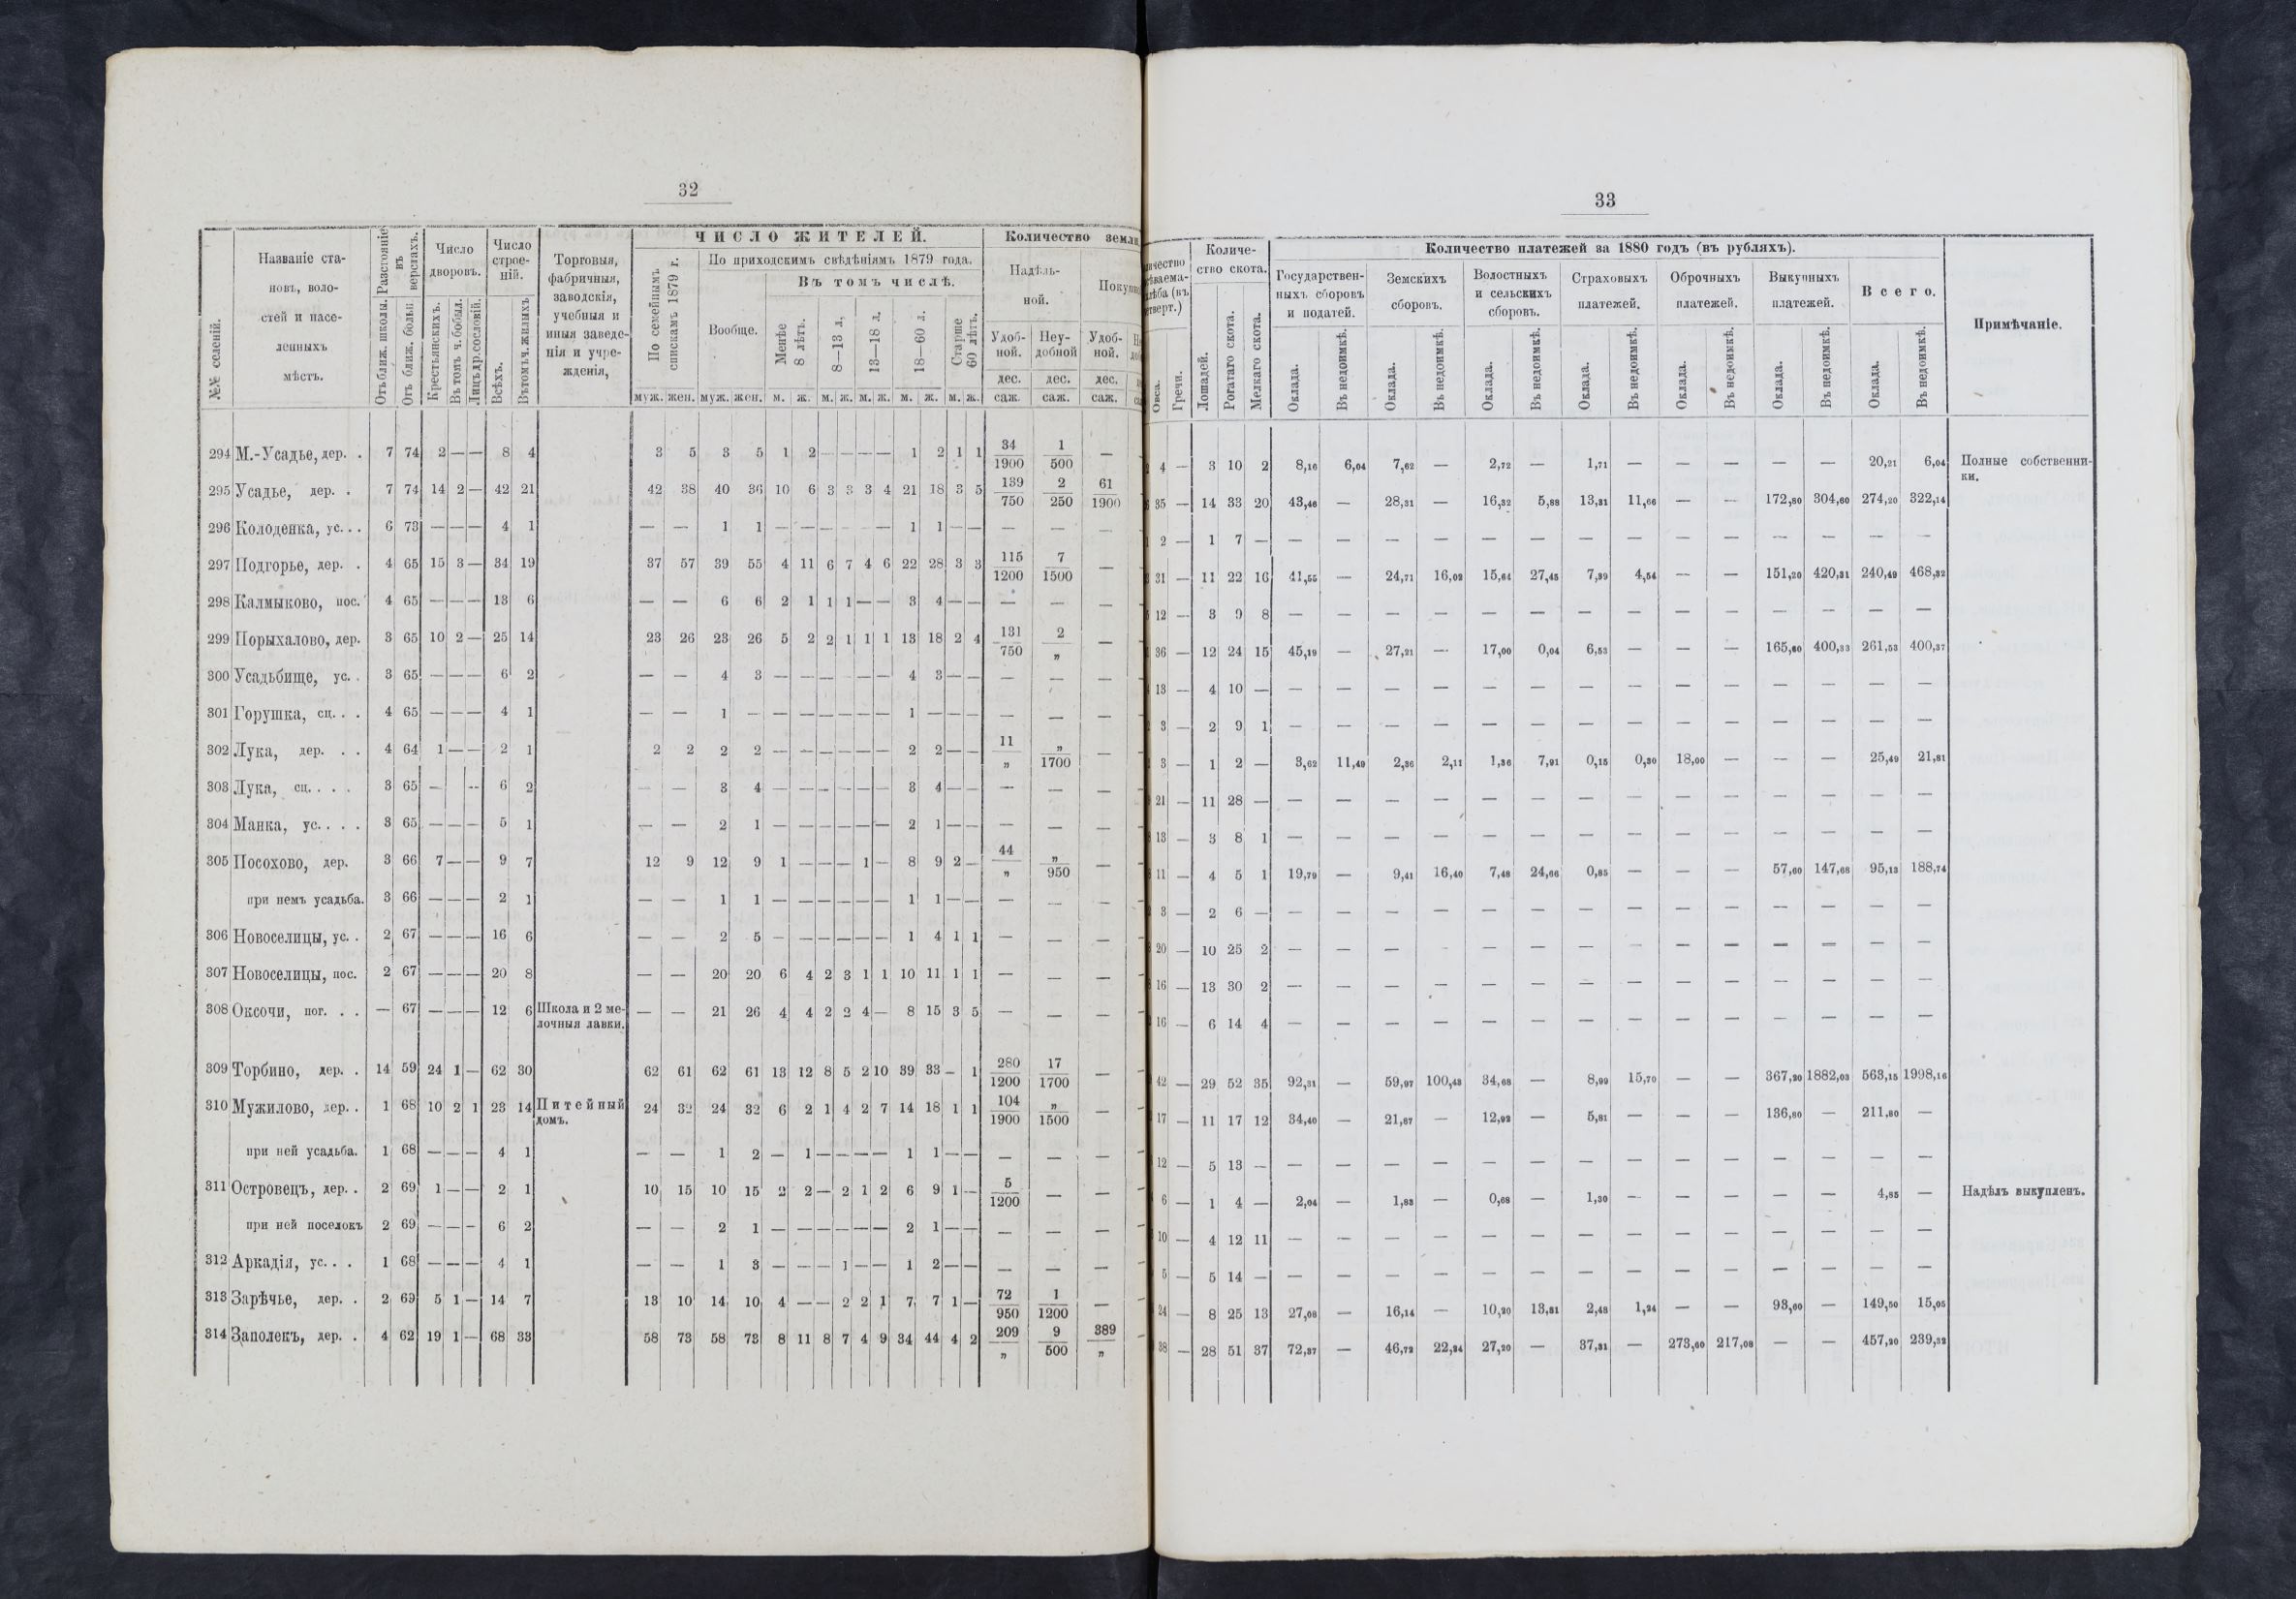 32
№№ селеній.
Названіе ста-
новъ, воло-
стей и насе-
ленныхъ
мѣстъ.
Разстояніе въ верстахъ.
Отъ ближ. школы.
Отъ ближ. больн.
Число дворовъ.
Крестьянскихъ.
Въ томъ ч. бобыл.
Лицъ др. сословій.
Число строе-
ній.
Всѣхъ.
Въ томъ ч. жилыхъ
Торговыя,
фабричныя,
заводскія,
учебныя и
иныя заведе-
нія и учре-
жденія,
ЧИСЛО ЖИТЕЛЕЙ.
По семейнымъ спискамъ 1879 г.
По приходскимъ свѣдѣніямъ 1879 года.
Вообще.
Въ томъ числѣ.
Менѣе 8 лѣтъ.
8—13 л.
13—18 л.
18—60 л.
Старше 60 лѣтъ.
муж. жен. муж. жен. м. ж. м. ж. м. ж. м. ж. м. ж.
Количество земли
Надѣль-
ной.
Удоб-
ной.
Неу-
добной
Удоб-
ной.
дес. дес. дес.
саж. саж. саж.
294 М.-Усадье, дер. . 7 74 2 — — 8 4 3 5 3 5 1 2 — — — — 1 2 1 1 34/1900 1/500 —
295 Усадье, дер. . 7 74 14 2 — 42 21 42 38 40 36 10 6 3 3 3 4 21 18 3 5 139/750 2/250 61/1900
296 Колоденка, ус. . . 6 73 — — — 4 1 — — 1 1 — — — — — — 1 1 — — — — —
297 Подгорье, дер. . 4 65 15 3 — 34 19 37 57 39 55 4 11 6 7 4 6 22 28 3 3 115/1200 7/1500 —
298 Калмыково, пос. 4 65 — — — 13 6 — — 6 6 2 1 1 1 — — 3 4 — — — — —
299 Порыхалово, дер. 3 65 10 2 — 25 14 23 26 23 26 5 2 2 1 1 1 13 18 2 4 131/750 2/„ —
300 Усадьбище, ус. . 3 65 — — — 6 2 — — 4 3 — — — — — — 4 3 — — — — —
301 Горушка, сц. . . 4 65 — — — 4 1 — — 1 — — — — — — — 1 — — — — — —
302 Лука, дер. . . 4 64 1 — — 2 1 2 2 2 2 — — — — — — 2 2 — — 11/„ „/1700 —
303 Лука, сц. . . . 3 65 — -- 6 2 — — 3 4 — — — — — — 3 4 — — — — —
304 Манка, ус. . . . 3 65 — — — 5 1 — — 2 1 — — — — — — 2 1 — — — — —
305 Посохово, дер. 3 66 7 — — 9 7 12 9 12 9 1 — — — 1 — 8 9 2 — 44/„ „/950 —
при немъ усадьба. 3 66 — — — 2 1 — — 1 1 — — — — — — 1 1 — — — — —
306 Новоселицы, ус. . 2 67 — — — 16 6 — — 2 5 — — — — — — 1 4 1 1 — — —
307 Новоселицы, пос. 2 67 — — — 20 8 — — 20 20 6 4 2 3 1 1 10 11 1 1 — — —
308 Оксочи, пог. . . — 67 — — — 12 6 Школа и 2 ме- — — 21 26 4 4 2 2 4 — 8 15 3 5 — — —
лочныя лавки.
309 Торбино, дер. . 14 59 24 1 — 62 30 62 61 62 61 13 12 8 5 2 10 39 33 — 1 280/1200 17/1700
310 Мужилово, дер. . 1 68 10 2 1 23 14 Питейный 24 32 24 32 6 2 1 4 2 7 14 18 1 1 104/1900 „/1500 —
домъ.
при ней усадьба. 1 68 — — — 4 1 — — 1 2 — 1 — — — — 1 1 — — — — —
311 Островецъ, дер. . 2 69 1 — — 2 1 10 15 10 15 2 2 — 2 1 2 6 9 1 — 5/1200 — —
при ней поселокъ 2 69 — — — 6 2 — — 2 1 — — — — — — 2 1 — — — — —
312 Аркадія, ус. . . 1 68 — — — 4 1 — — 1 3 — — — 1 — — 1 2 — — — — —
313 Зарѣчье, дер. . 2 69 5 1 — 14 7 13 10 14 10 4 — — 2 2 1 7 7 1 — 72/950 1/1200 —
314 Заполекъ, дер. . 4 62 19 1 — 68 33 58 73 58 73 8 11 8 7 4 9 34 44 4 2 209/„ 9/500 389/„
33
Овса.
Гречи.
Количе-
ство скота.
Лошадей.
Рогатаго скота.
Мелкаго скота.
Количество платежей за 1880 годъ (въ рубляхъ).
Государствен-
ныхъ сборовъ
и податей.
Земскихъ
сборовъ.
Волостныхъ
и сельскихъ
сборовъ.
Страховыхъ
платежей.
Оброчныхъ
платежей.
Выкупныхъ
платежей.
Всего.
Оклада. Въ недоимкѣ. Оклада. Въ недоимкѣ. Оклада. Въ недоимкѣ. Оклада. Въ недоимкѣ. Оклада. Въ недоимкѣ. Оклада. Въ недоимкѣ. Оклада. Въ недоимкѣ.
Примѣчаніе.
4 — 3 10 2 8,16 6,04 7,62 — 2,72 — 1,71 — — — — — 20,21 6,04 Полные собственни-
ки.
35 — 14 33 20 43,46 — 28,31 — 16,32 5,88 13,31 11,66 — — 172,80 304,60 274,20 322,14
2 — 1 7 — — — — — — — — — — — — — — —
31 — 11 22 16 41,55 — 24,71 16,02 15,64 27,45 7,39 4,54 — — 151,20 420,31 240,49 468,32
12 — 3 9 8 — — — — — — — — — — — — — —
36 — 12 24 15 45,19 — 27,21 — 17,00 0,04 6,53 — — — 165,60 400,33 261,53 400,37
13 — 4 10 — — — — — — — — — — — — — — —
3 — 2 9 1 — — — — — — — — — — — — — —
3 — 1 2 — 3,62 11,49 2,36 2,11 1,36 7,91 0,15 0,30 18,00 — — — 25,49 21,81
21 — 11 28 — — — — — — — — — — — — — — —
13 — 3 8 1 — — — — — — — — — — — — — —
11 — 4 5 1 19,79 — 9,41 16,40 7,48 24,66 0,85 — — — 57,60 147,68 95,13 188,74
3 — 2 6 — — — — — — — — — — — — — — —
20 — 10 25 2 — — — — — — — — — — — — — —
16 — 13 30 2 — — — — — — — — — — — — — —
16 — 6 14 4 — — — — — — — — — — — — — —
42 — 29 52 35 92,31 — 59,97 100,43 34,68 — 8,99 15,70 — — 367,20 1882,03 563,15 1998,16
17 — 11 17 12 34,40 — 21,87 — 12,92 — 5,81 — — — 136,80 — 211,80 —
12 — 5 13 — — — — — — — — — — — — — — —
6 — 1 4 — 2,04 — 1,83 — 0,68 — 1,30 — — — — — 4,85 — Надѣлъ выкупленъ.
10 — 4 12 11 — — — — — — — — — — — — — —
5 — 5 14 — — — — — — — — — — — — — — —
24 — 8 25 13 27,08 — 16,14 — 10,20 13,81 2,48 1,24 — — 93,60 — 149,50 15,05
38 — 28 51 37 72,37 — 46,72 22,24 27,20 — 37,31 — 273,60 217,08 — — 457,20 239,32